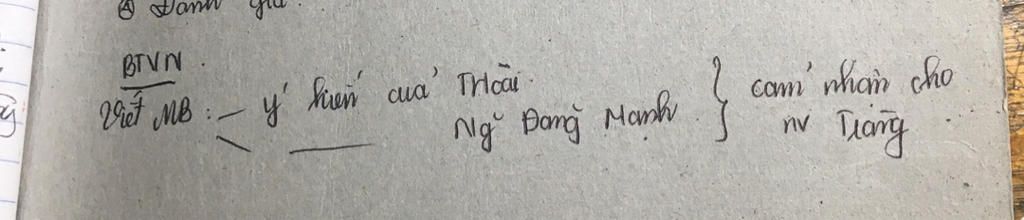 ④ Đánh giá.
BTVN.
Viết MB: – ý kiến của THoài. } cảm nhận cho
Ngˇ Đăng Mạnh. nv Tràng